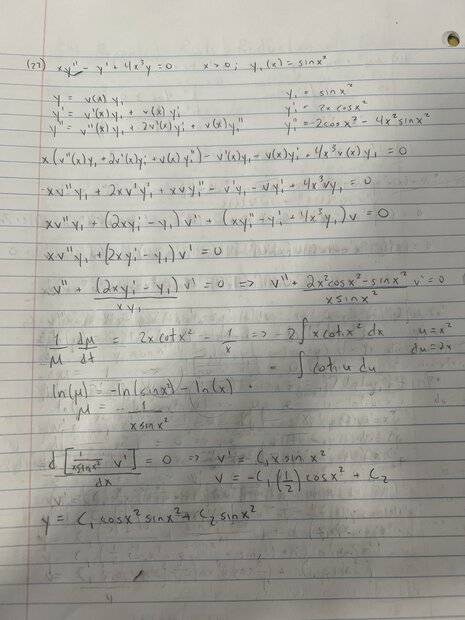 (27) xy'' - y' + 4x³y = 0   x > 0; y₁(x) = sinx²
y = v(x) y₁   y₁ = sinx²
y' = v'(x)y₁ + v(x) y₁'   y₁' = 2x cosx²
y'' = v''(x)y₁ + 2v'(x)y₁' + v(x)y₁''   y₁'' = 2cosx² - 4x² sinx²
x(v''(x)y₁ + 2v'(x)y₁' + v(x)y₁'') - v'(x)y₁ - v(x)y₁' + 4x³v(x)y₁ = 0
xv''y₁ + 2xv'y₁' + xvy₁'' - v'y₁ - vy₁' + 4x³vy₁ = 0
xv''y₁ + (2xy₁' - y₁)v' + (xy₁'' - y₁' + 4x³y₁)v = 0
xv''y₁ + (2xy₁' - y₁)v' = 0
v'' + (2xy₁' - y₁)/(xy₁) v' = 0 => v'' + (2x²cosx² - sinx²)/(x sinx²) v' = 0
1/μ dμ/dt = 2x cotx² - 1/x => 2∫x cot x² dx   u = x²
du = 2x
= ∫cot u du
ln(μ) = -ln(sinx²) - ln(x)
μ = 1/(x sinx²)
d[1/(x sinx²) v']/dx = 0 => v' = C₁x sin x²
v = -C₁(1/2)cosx² + C₂
y = C₁ cosx² sinx² + C₂ sinx²